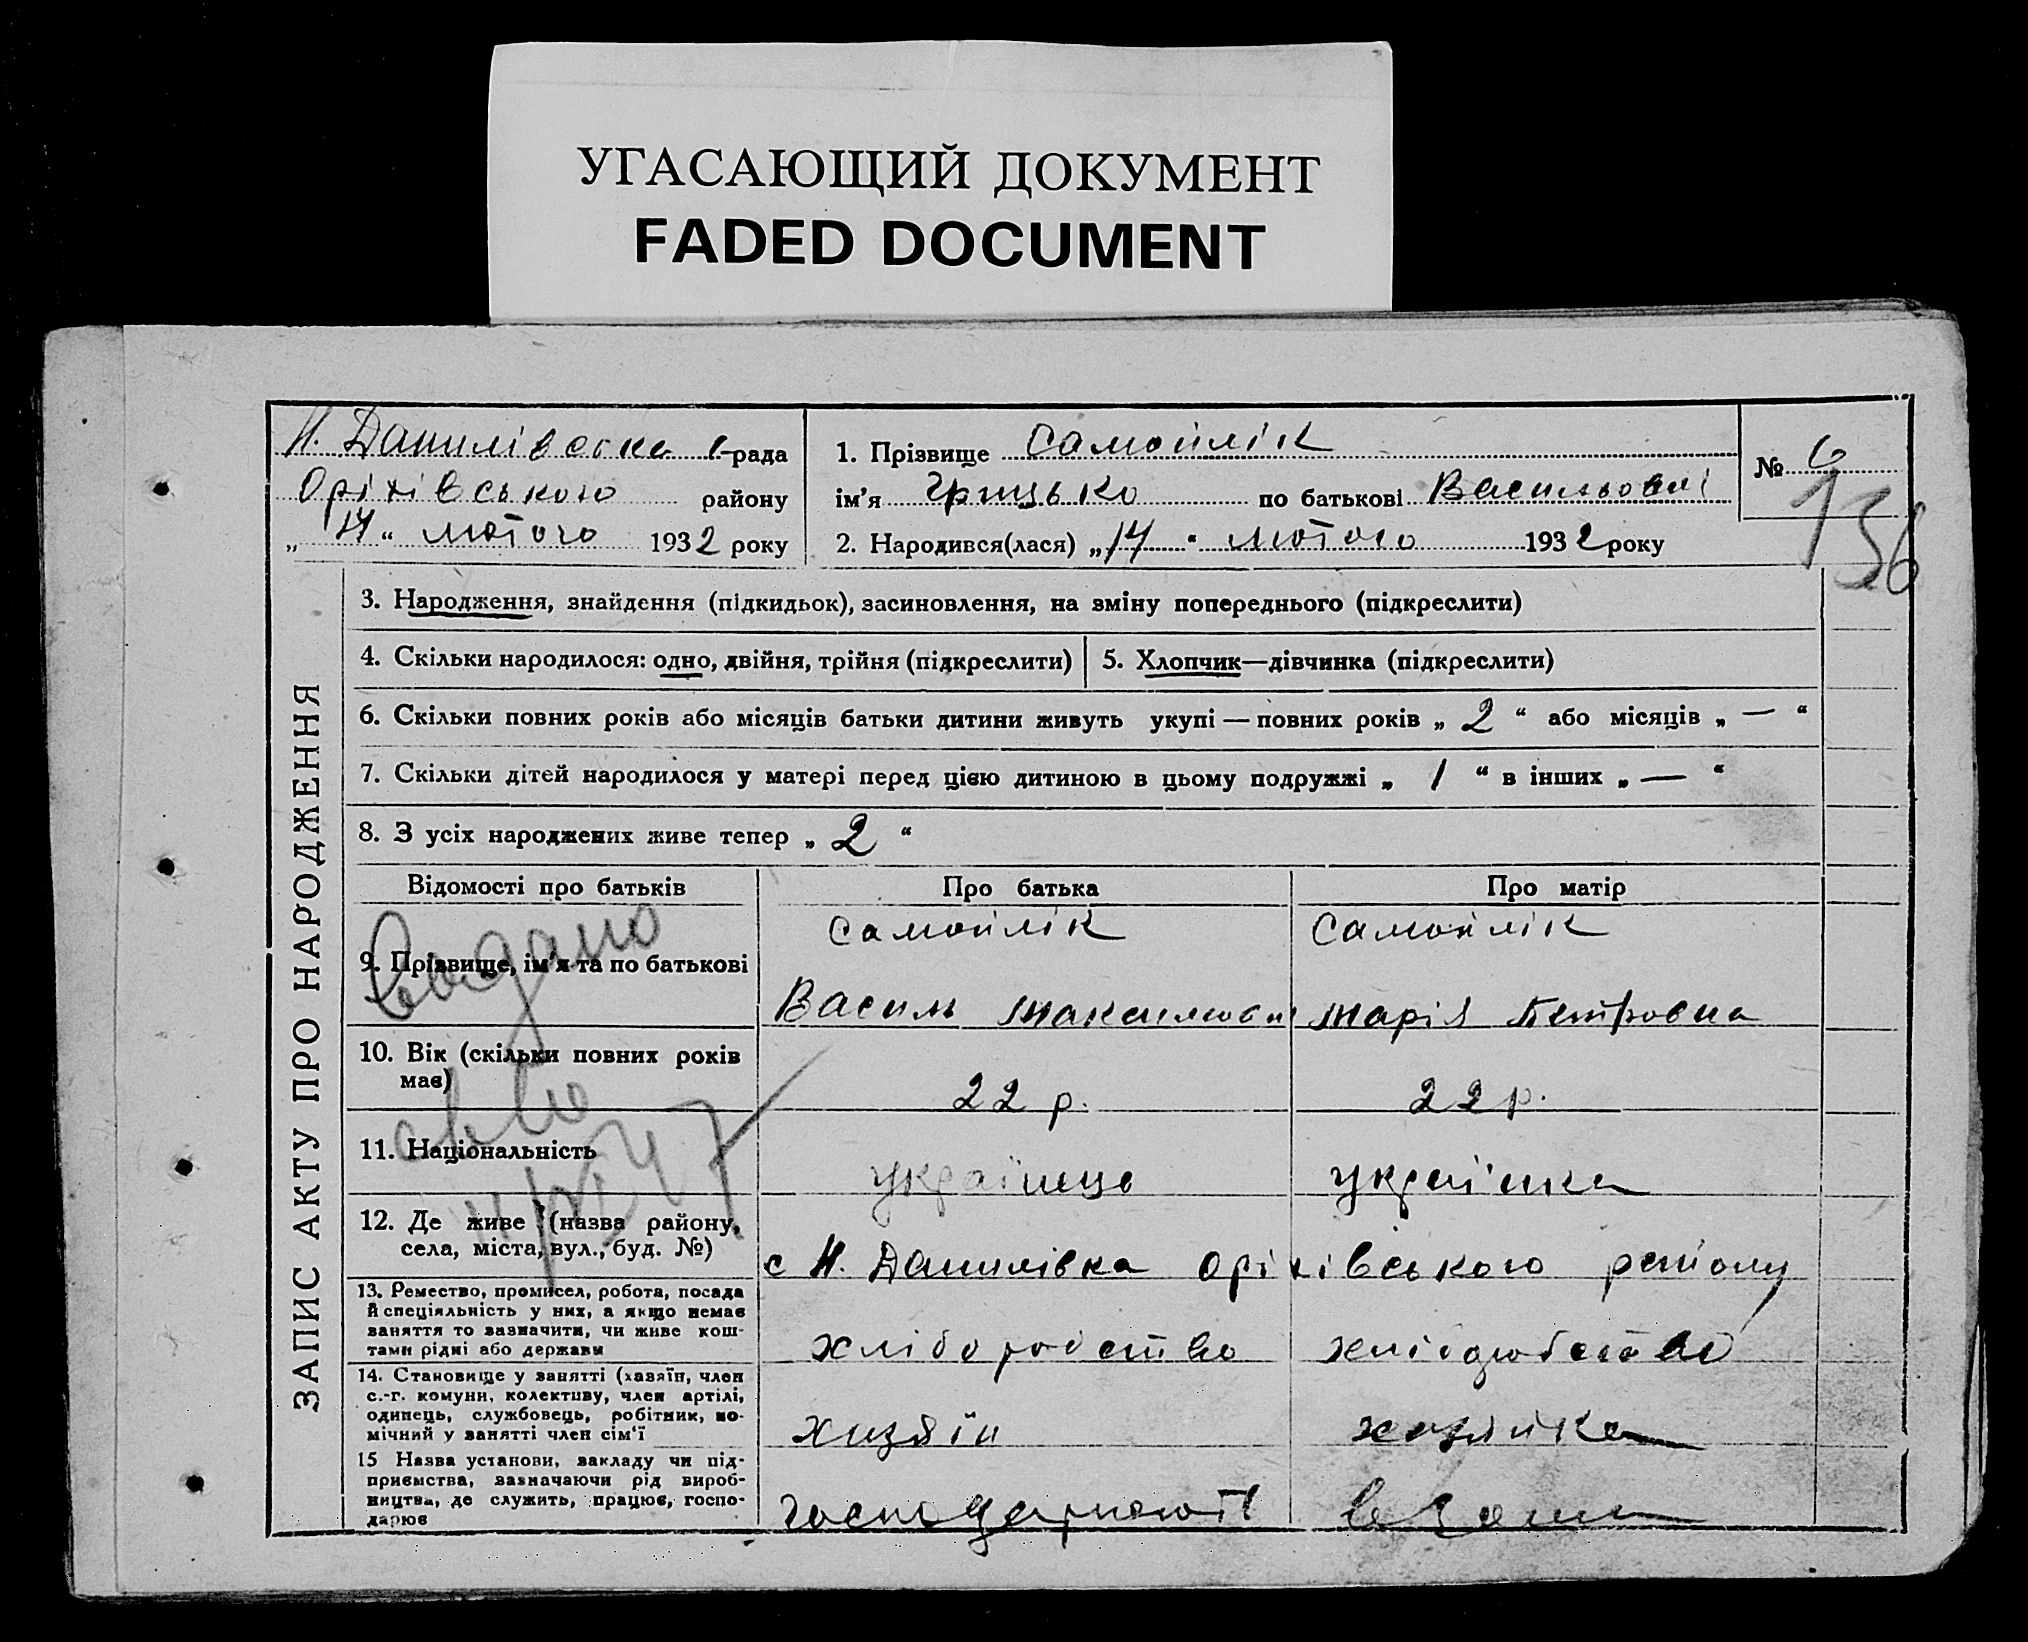 УГАСАЮЩИЙ ДОКУМЕНТ
FADED DOCUMENT
Н. Данилівська с-рада
Оріхівського району
„14“ лютого 1932 року
1. Прізвище Самойлік
ім’я Грицько по батькові Васильові
2. Народився(лася) „14“ лютого 1932 року
№ 6
136
ЗАПИС АКТУ ПРО НАРОДЖЕННЯ
3. Народження, знайдення (підкидьок), засиновлення, на зміну попереднього (підкреслити)
4. Скільки народилося: одно, двійня, трійня (підкреслити)
5. Хлопчик—дівчинка (підкреслити)
6. Скільки повних років або місяців батьки дитини живуть укупі — повних років „ 2 “ або місяців „ — “
7. Скільки дітей народилося у матері перед цією дитиною в цьому подружжі „ 1 “ в інших „ — “
8. З усіх народжених живе тепер „ 2 “
Відомості про батьків Про батька Про матір
9. Прізвище, ім’я та по батькові
Самойлік Самойлік
Василь Максимови Марія Петровна
10. Вік (скільки повних років
має)
22 р. 22 р.
11. Національність
українець українка
12. Де живе (назва району,
села, міста, вул., буд. №)
с Н. Данилівка Оріхівського району
13. Ремество, промисел, робота, посада
й спеціяльність у них, а якщо немає
заняття то зазначити, чи живе кош-
тами рідні або держави
хліборобство хліборобство
14. Становище у занятті (хазяїн, член
с.-г. комуни, колективу, член артілі,
одинець, службовець, робітник, по-
мічний у занятті член сім’ї
хазяїн хазяйка
15 Назва установи, закладу чи під-
приємства, зазначаючи рід вироб-
ництва, де служить, працює, госпо-
дарює
Видано
св-во
47